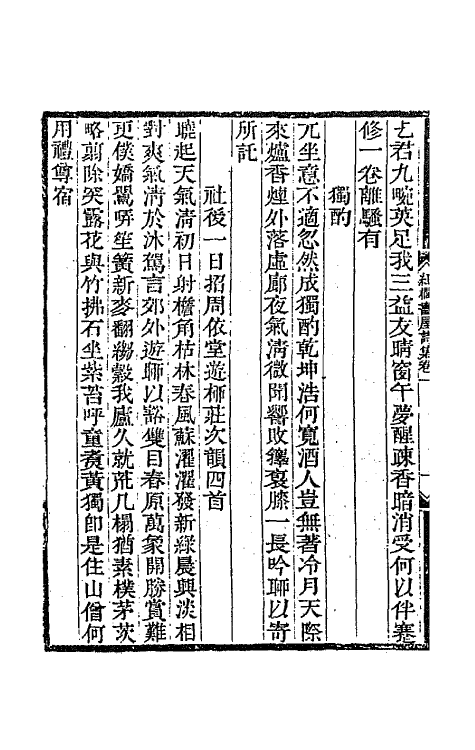 七君九畹英足我三益友晴窗午夢醒疎香暗消受何以伴蹇
修一卷離騷有
獨酌
兀坐意不適忽然成獨酌乾坤浩何寬酒人豈無著冷月天際
來爐香煙外落虛廊夜氣清微聞響敗籜裒膝一長吟聊以寄
所託
社後一日招周依堂遊柳莊次韻四首
曉起天氣清初日射檐角枯林春風蘇濯濯發新綠晨興淡相
對爽氣清於沐駕言郊外遊聊以豁雙目春原萬象開勝賞難
更僕嬌鶯哢笙簧新麥翻縐縠我廬久就荒几榻猶素樸茅茨
略翦除突露花與竹拂石坐紫苔呼童煑黃獨卽是住山僧何
用禮尊宿
紅櫚書屋詩集卷一